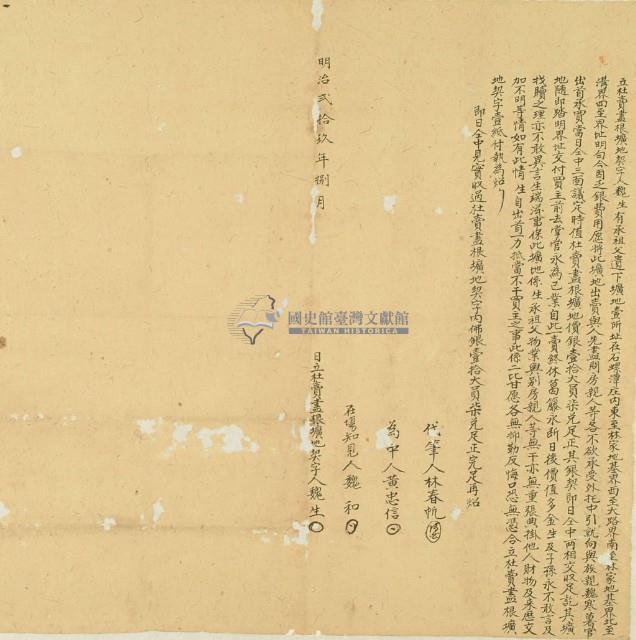 立杜賣盡根壙地契字人魏生有承祖父遺下壙地壹所址在石螺潭庄內東至林家地基界西至大路界南至林家地基界北至
溝界四至界址明白今因乏銀費用愿將此壙地出賣與人先盡問房親人等各不欲承受外托中引就向與族親魏寒薯官
出首承買當日仝中三面議定時值杜賣盡根壙地價銀壹拾大員柒兌足正其銀契即日仝中兩相交收足訖其壙
地隨即踏明界址交付買主前去掌管永為己業自此一賣終休葛藤永斷日後價值多金生及子孫永不敢言及
找贖之理亦不敢異言生端滋事保此壙地係生承祖父物業與別房親人等無干亦無重張典掛他人財物及來歷交
加不明等情如有此情生自出首一力抵當不干買主之事此係二比甘愿各無抑勒反悔口恐無憑合立杜賣盡根壙
地契字壹紙付執為炤
即日仝中見實收過杜賣盡根壙地契字內佛銀壹拾大員柒兌足正完足再炤
代筆人林春帆
為中人黃忠信
在場知見人魏和
明治貳拾玖年捌月 日立杜賣盡根壙地契字人魏生
國史館臺灣文獻館
TAIWAN HISTORICA